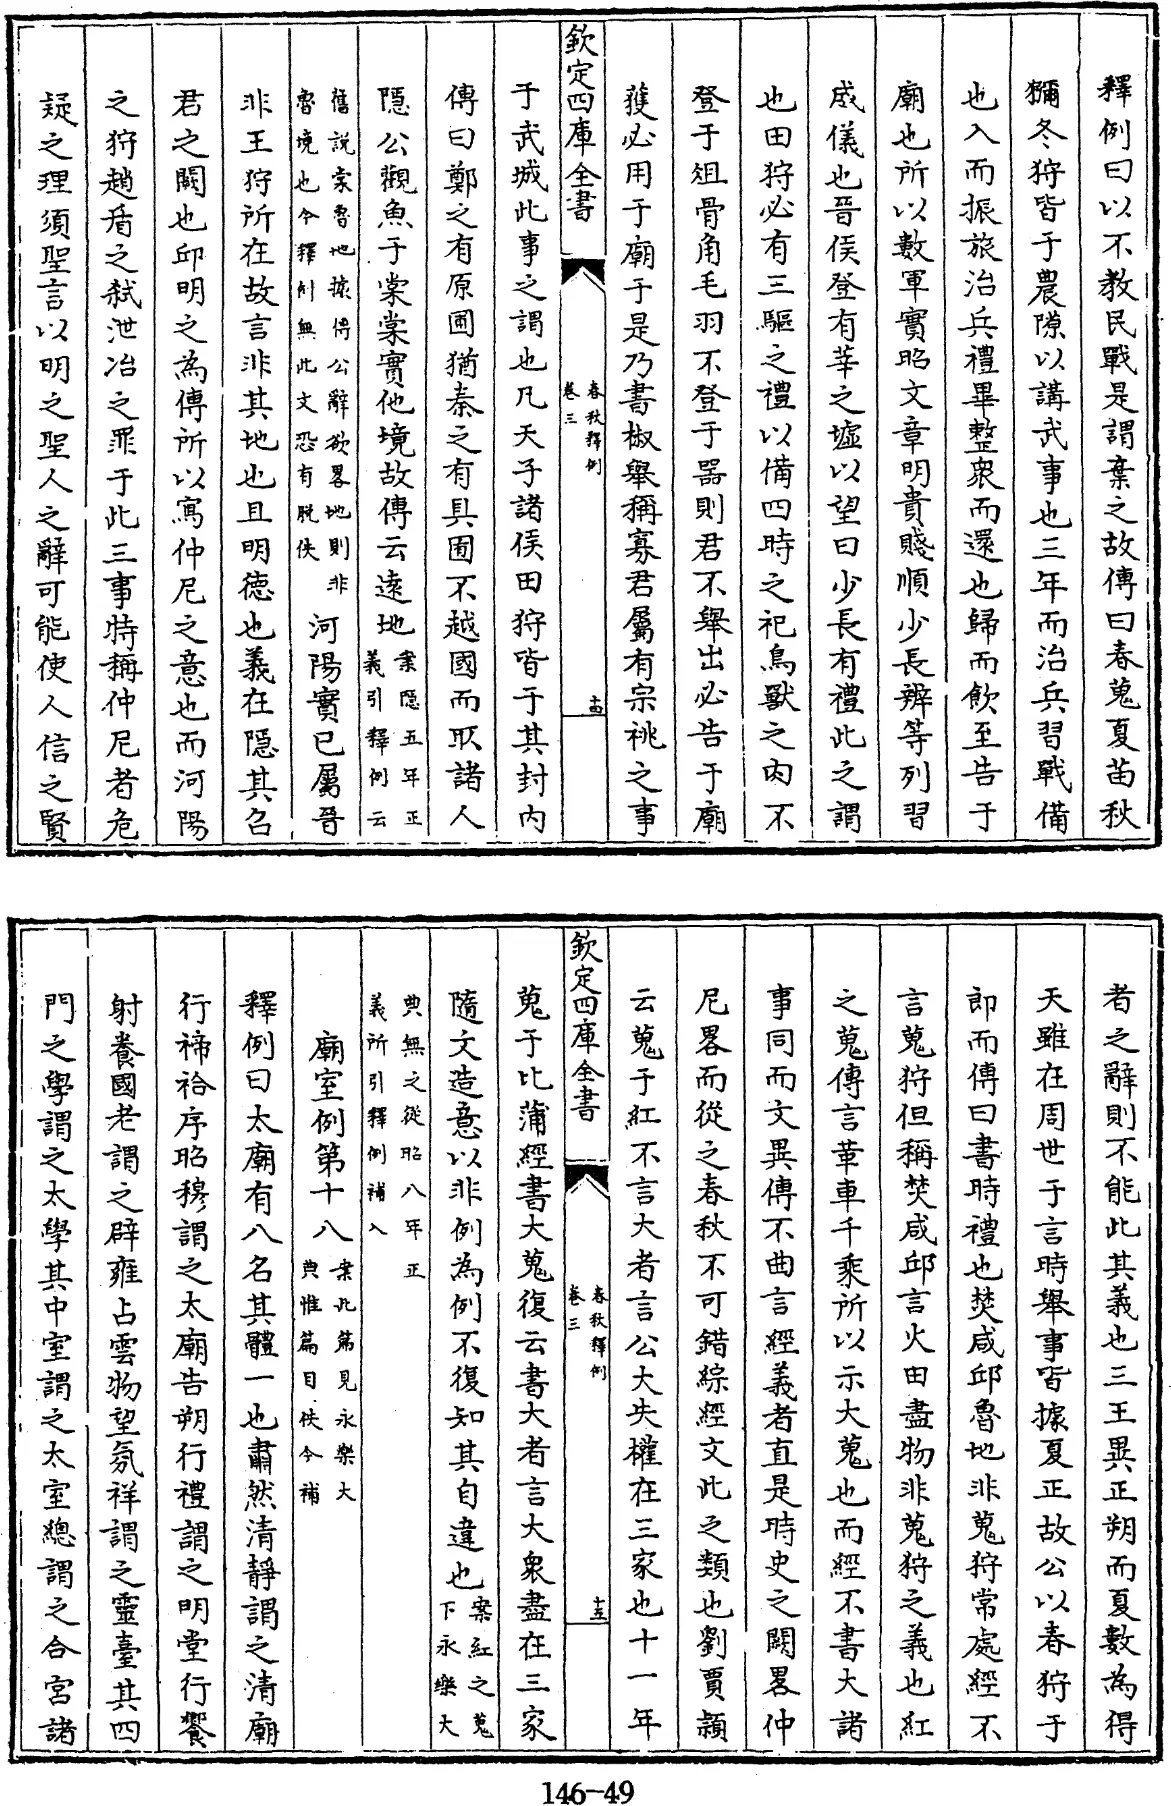 釋例曰以不教民戰是謂棄之故傳曰春蒐夏苗秋
獮冬狩皆于農隙以講武事也三年而治兵習戰備
也入而振旅治兵禮畢整衆而還也歸而飲至告于
廟也所以數軍實昭文章明貴賤順少長辨等列習
威儀也晉侯登有莘之墟以望曰少長有禮此之謂
也田狩必有三驅之禮以備四時之祀鳥獸之肉不
登于俎骨角毛羽不登于器則君不舉出必告于廟
獲必用于廟于是乃書椒舉稱寡君屬有宗祧之事
欽定四庫全書
春秋釋例
卷三
十四
于武城此事之謂也凡天子諸侯田狩皆于其封内
傳曰鄭之有原圃猶秦之有具囿不越國而取諸人
隱公觀魚于棠棠實他境故傳云遠地
案隱五年正
義引釋例云
舊說棠魯地據傳公辭欲畧地則非
魯境也今釋例無此文恐有脫佚
河陽實已屬晉
非王狩所在故言非其地也且明德也義在隱其召
君之闕也邱明之為傳所以寫仲尼之意也而河陽
之狩趙盾之弑泄冶之罪于此三事特稱仲尼者危
疑之理須聖言以明之聖人之辭可能使人信之賢
者之辭則不能此其義也三王異正朔而夏數為得
天雖在周世于言時舉事皆據夏正故公以春狩于
郎而傳曰書時禮也焚咸邱魯地非蒐狩常處經不
言蒐狩但稱焚咸邱言火田盡物非蒐狩之義也紅
之蒐傳言革車千乘所以示大蒐也而經不書大諸
事同而文異傳不曲言經義者直是時史之闕畧仲
尼畧而從之春秋不可錯綜經文此之類也劉賈潁
云蒐于紅不言大者言公大失權在三家也十一年
欽定四庫全書
春秋釋例
卷三
十五
蒐于比蒲經書大蒐復云書大者言大衆盡在三家
隨文造意以非例為例不復知其自違也
案紅之蒐
下永樂大
典無之從昭八年正
義所引釋例補入
廟室例第十八
案此篇見永樂大
典惟篇目佚今補
釋例曰太廟有八名其體一也肅然清靜謂之清廟
行禘祫序昭穆謂之太廟告朔行禮謂之明堂行饗
射養國老謂之辟雍占雲物望氛祥謂之靈臺其四
門之學謂之太學其中室謂之太室總謂之合宮諸
146-49